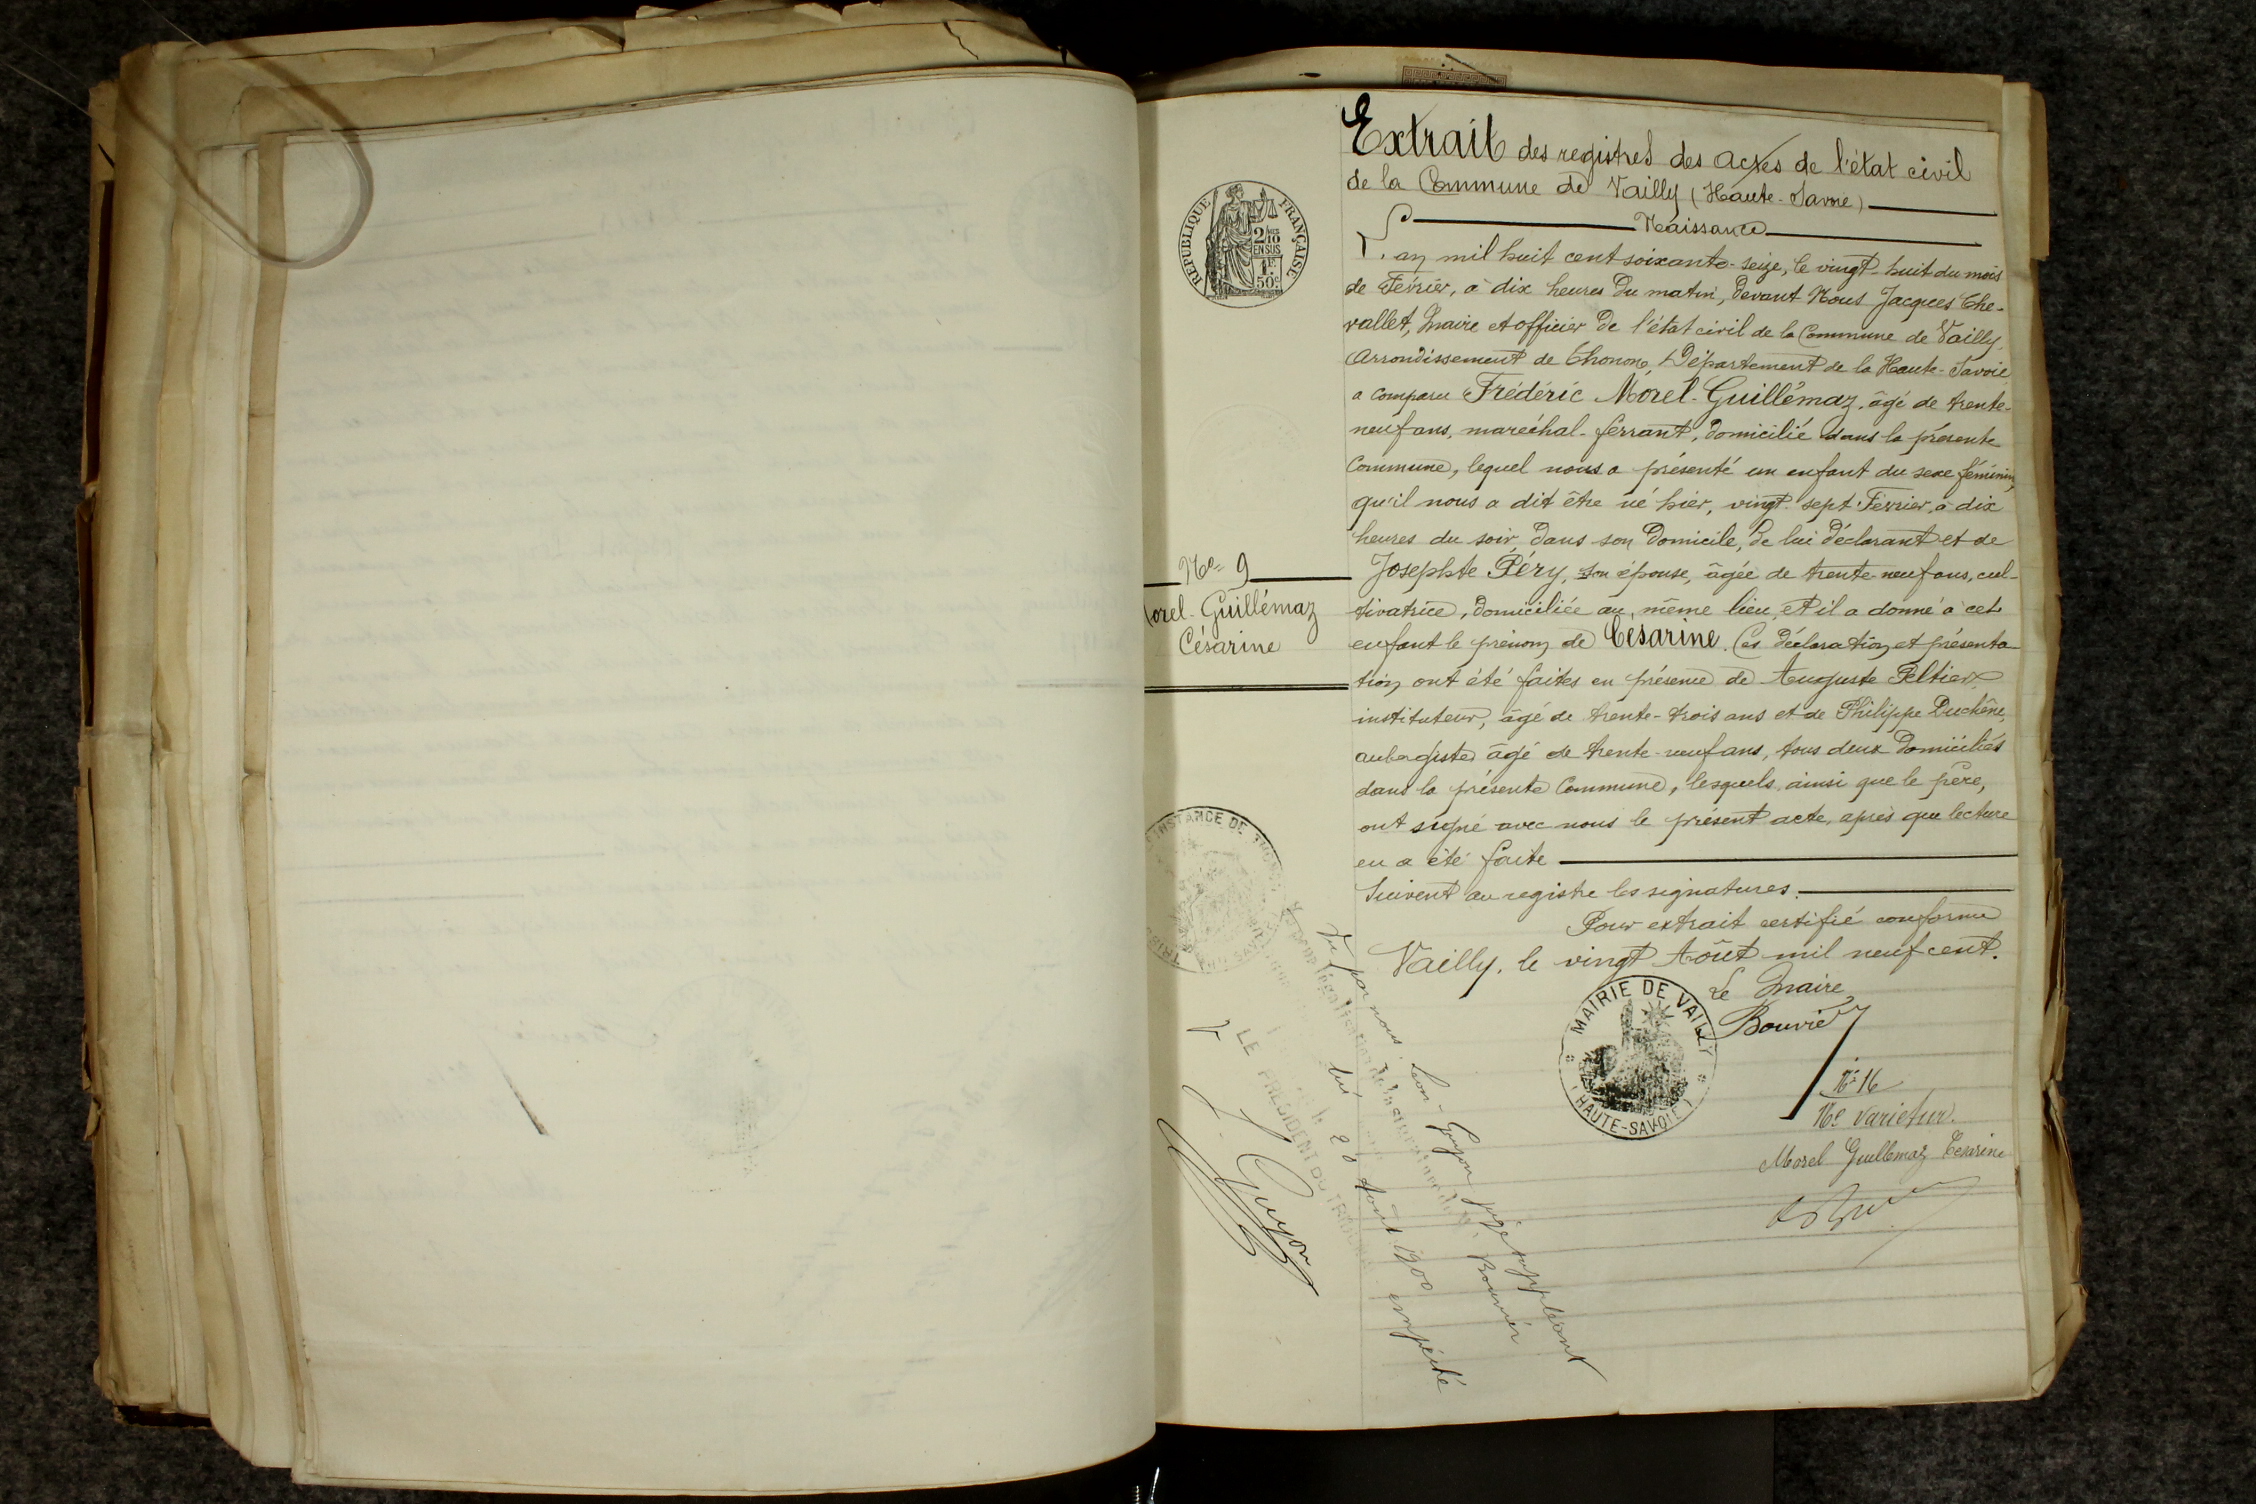 Extrait des registres des actes de l'état civil
de la Commune de Vailly (Haute-Savoie)
Naissance
L'an mil huit cent soixante-seize, le vingt-huit du mois
de Février, à dix heures du matin, devant Nous Jacques Che-
vallet, Maire et officier de l'état civil de la Commune de Vailly,
Arrondissement de Thonon, Département de la Haute-Savoie,
a comparu Frédéric Morel-Guillémaz, âgé de trente-
neuf ans, maréchal-ferrant, domicilié dans la présente
Commune, lequel nous a présenté un enfant du sexe féminin,
qu'il nous a dit être né hier, vingt-sept Février, à dix
heures du soir, dans son domicile, de lui déclarant et de
Josephte Péry, son épouse, âgée de trente-neuf ans, cul-
tivatrice, domiciliée au même lieu, et il a donné à cet
enfant le prénom de Césarine. Ces déclaration et présenta-
tion ont été faites en présence de Auguste Peltier,
instituteur, âgé de trente-trois ans et de Philippe Duchêne,
aubergiste, âgé de trente-neuf ans, tous deux domiciliés
dans la présente Commune, lesquels, ainsi que le père,
ont signé avec nous le présent acte, après que lecture
en a été faite
Suivent au registre les signatures.
Pour extrait certifié conforme
Vailly, le vingt Août mil neuf cent.
Le Maire
Bouvier
N° 16
Ne varietur.
Morel Guillemaz Césarine
RÉPUBLIQUE FRANÇAISE
2/10
EN SUS
1F.
50c.
N° 9
orel-Guillémaz
Césarine
INSTANCE DE
MAIRIE DE VAILLY
(HAUTE-SAVOIE)
Vu par nous Léon Guyon juge suppléant
Bouvier
20 Août 1900 empêché
LE PRÉSIDENT DU TRIBUNAL
Guyon